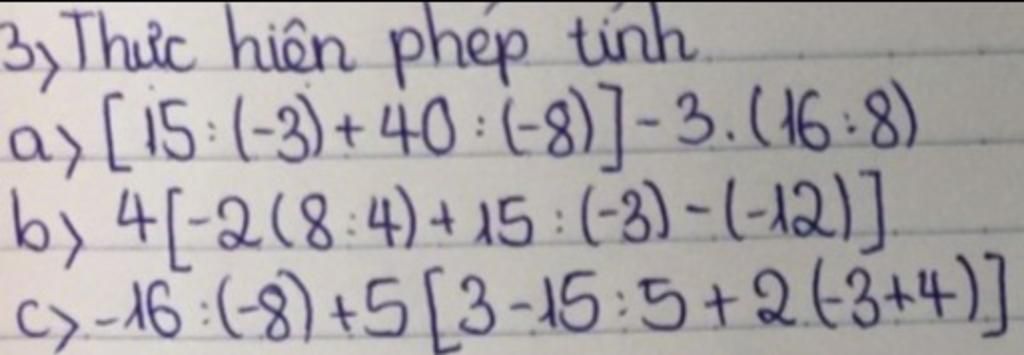 3) Thực hiện phép tính
a) [15 : (-3) + 40 : (-8)] - 3 . (16 : 8)
b) 4[-2(8 : 4) + 15 : (-3) - (-12)]
c) -16 : (-8) + 5[3 - 15 : 5 + 2(-3+4)]